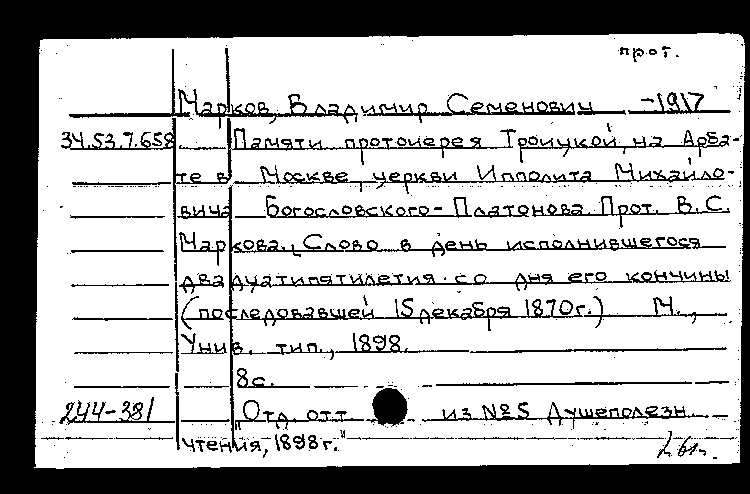 прот.
Марков, Владимир Семенович -1917
34.53.7.658 Памяти протоиерея Троицкой, на Арба-
те в Москве, церкви Ипполита Михайло-
вича Богословского-Платонова Прот. В.С.
Маркова. Слово в день исполнившегося
двадцатипятилетия со дня его кончины
(последовавшей 15 декабря 1870г.) М.,
Унив. тип., 1898.
8с.
244-381 "Отд. отт. из №5 Душеполезн.
чтения, 1898г."